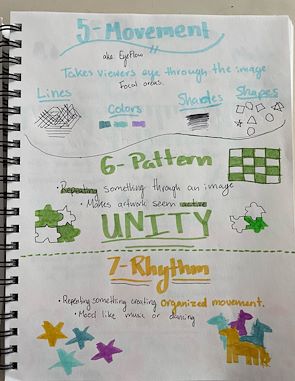 5-Movement
aka. EyeFlow
Takes viewers eye through the image
Focal areas.
Lines
Colors
Shades
Shapes
6-Pattern
• Repeating something through an image
• Makes artwork seem active
UNITY
7-Rhythm
• Repeating something creating organized movement.
• Mood like music or dancing